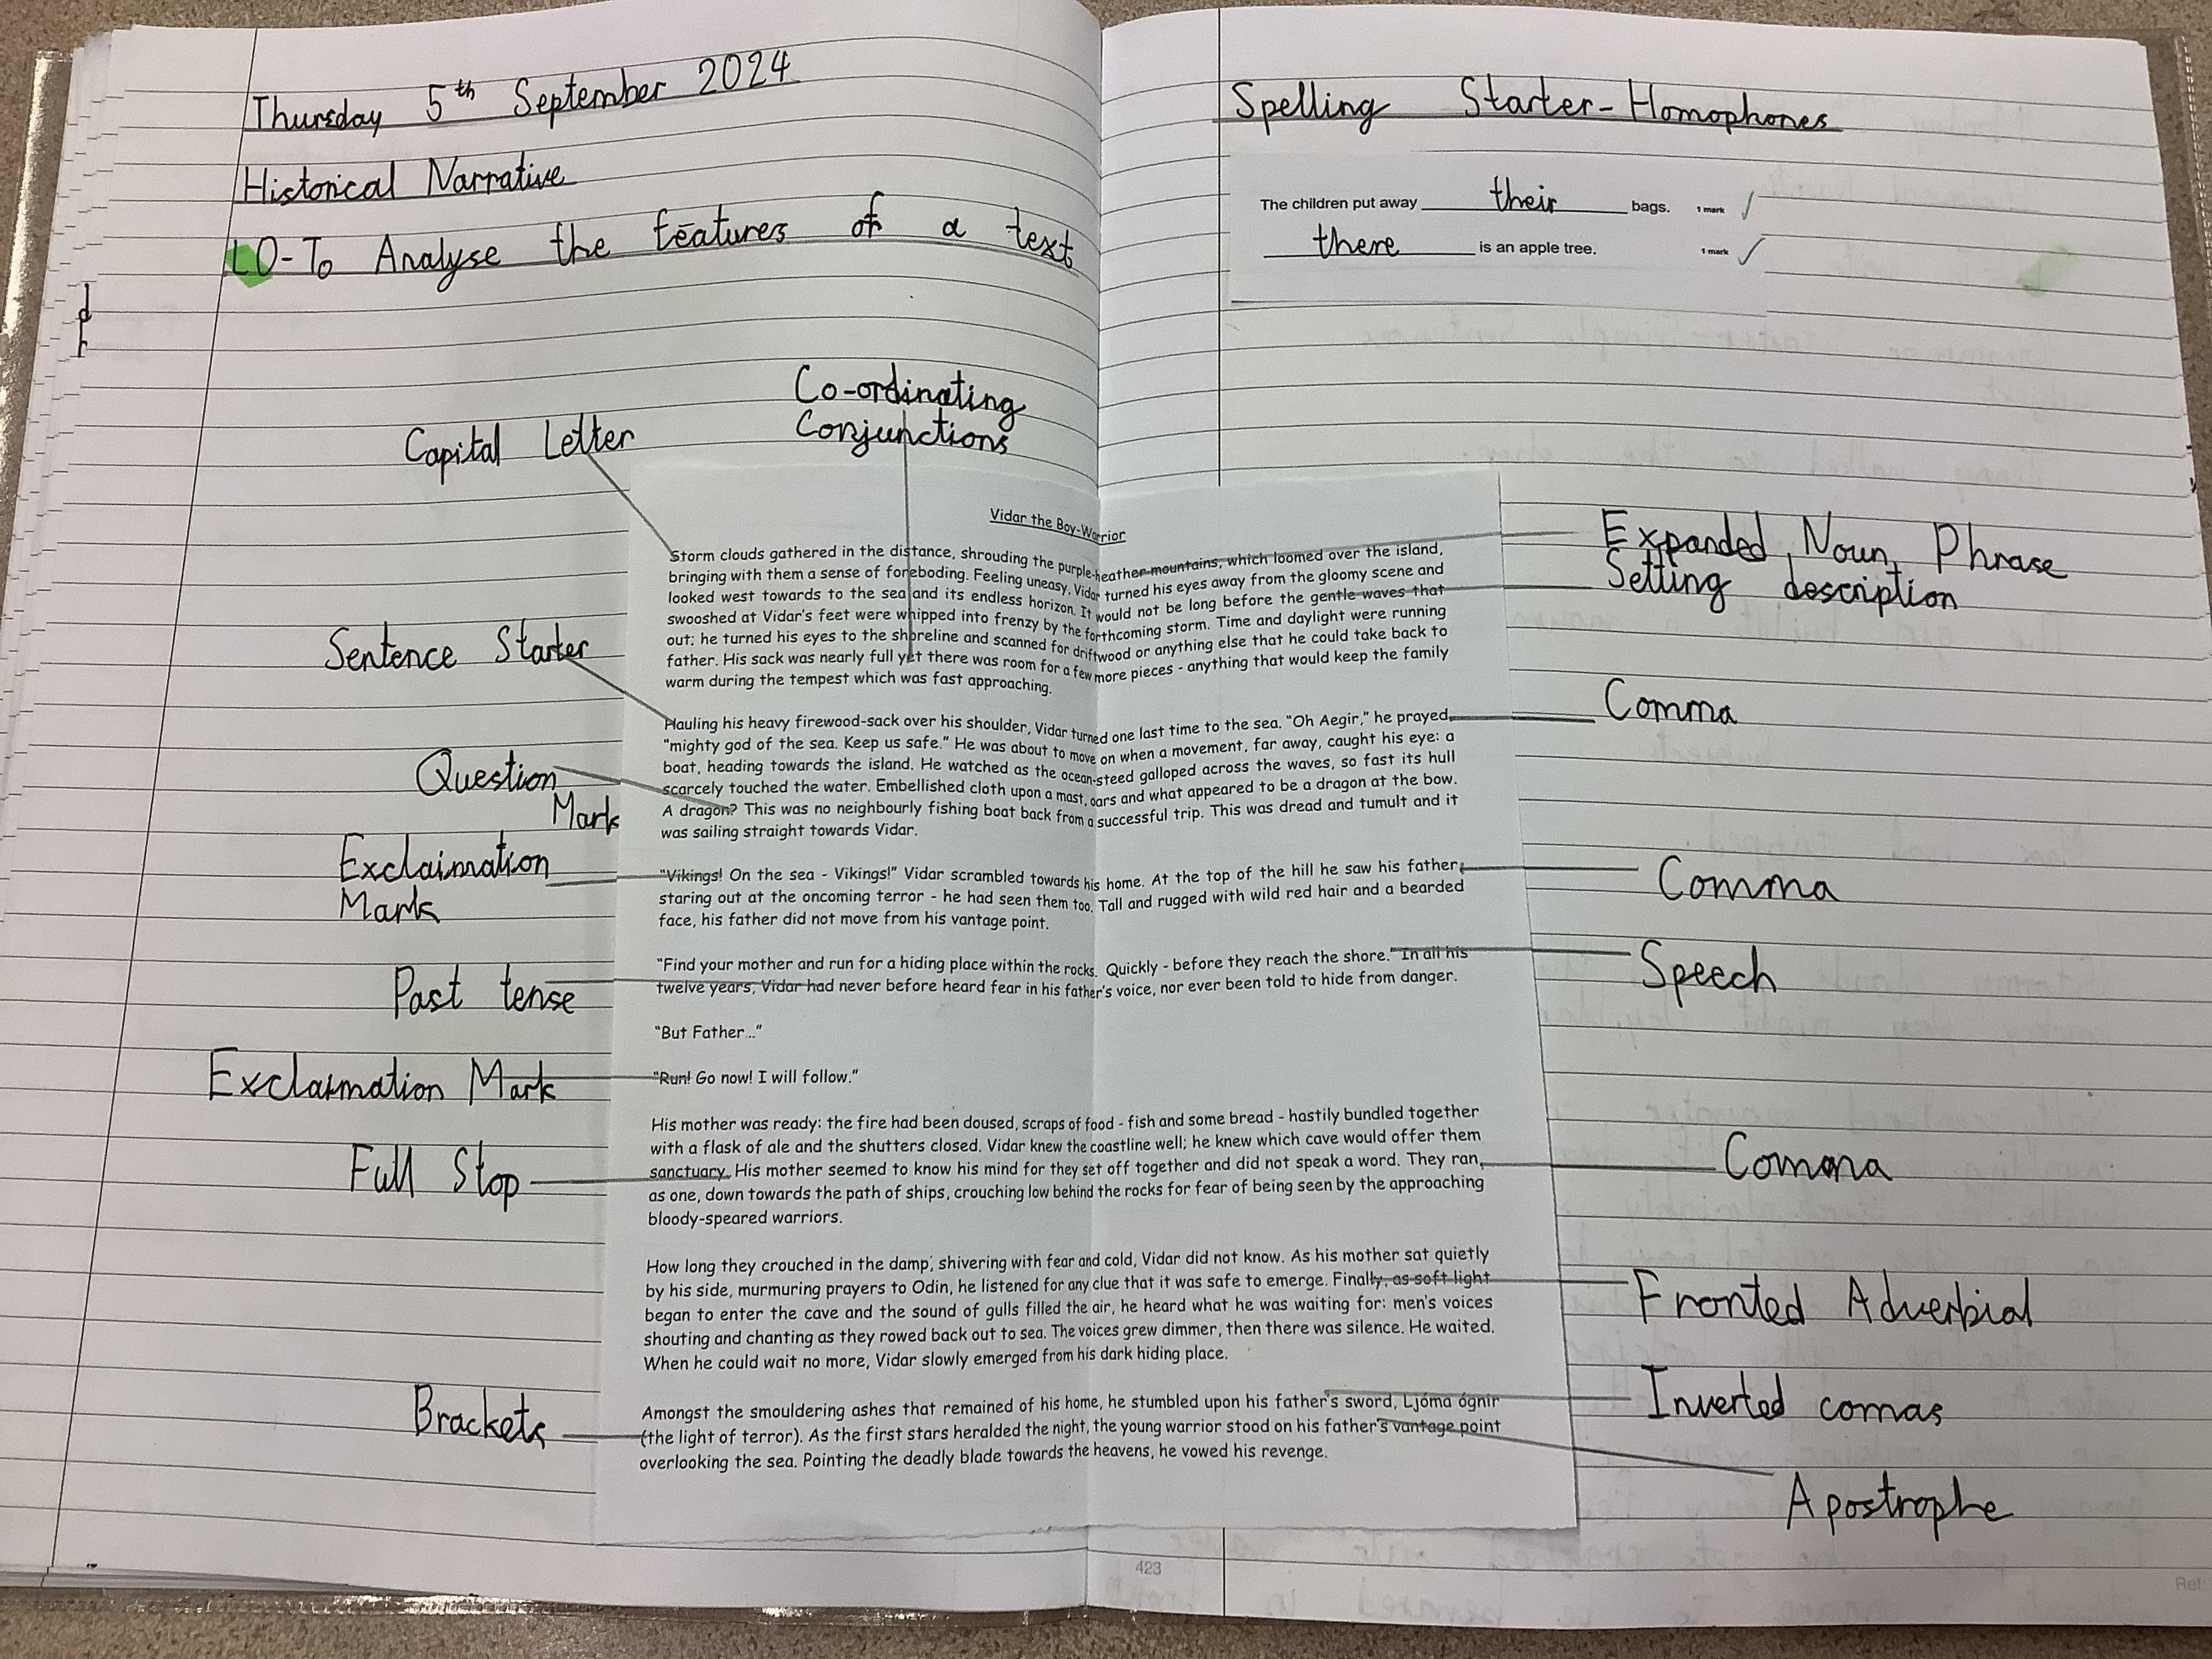 Thursday 5th September 2024
Historical Narrative
LO-To Analyse the features of a text
Capital Letter
Co-ordinating
Conjunctions
Sentence Starter
Question
Mark
Exclaimation
Mark
Past tense
Exclaimation Mark
Full Stop
Brackets
Vidar the Boy-Warrior
Storm clouds gathered in the distance, shrouding the purple-heather mountains, which loomed over the island,
bringing with them a sense of foreboding. Feeling uneasy, Vidar turned his eyes away from the gloomy scene and
looked west towards to the sea and its endless horizon. It would not be long before the gentle waves that
swooshed at Vidar's feet were whipped into frenzy by the forthcoming storm. Time and daylight were running
out; he turned his eyes to the shoreline and scanned for driftwood or anything else that he could take back to
father. His sack was nearly full yet there was room for a few more pieces - anything that would keep the family
warm during the tempest which was fast approaching.
Hauling his heavy firewood-sack over his shoulder, Vidar turned one last time to the sea. "Oh Aegir," he prayed,
"mighty god of the sea. Keep us safe." He was about to move on when a movement, far away, caught his eye: a
boat, heading towards the island. He watched as the ocean-steed galloped across the waves, so fast its hull
scarcely touched the water. Embellished cloth upon a mast, oars and what appeared to be a dragon at the bow.
A dragon? This was no neighbourly fishing boat back from a successful trip. This was dread and tumult and it
was sailing straight towards Vidar.
"Vikings! On the sea - Vikings!" Vidar scrambled towards his home. At the top of the hill he saw his father,
staring out at the oncoming terror - he had seen them too. Tall and rugged with wild red hair and a bearded
face, his father did not move from his vantage point.
"Find your mother and run for a hiding place within the rocks. Quickly - before they reach the shore." In all his
twelve years, Vidar had never before heard fear in his father's voice, nor ever been told to hide from danger.
"But Father..."
"Run! Go now! I will follow."
His mother was ready: the fire had been doused, scraps of food - fish and some bread - hastily bundled together
with a flask of ale and the shutters closed. Vidar knew the coastline well; he knew which cave would offer them
sanctuary. His mother seemed to know his mind for they set off together and did not speak a word. They ran,
as one, down towards the path of ships, crouching low behind the rocks for fear of being seen by the approaching
bloody-speared warriors.
How long they crouched in the damp, shivering with fear and cold, Vidar did not know. As his mother sat quietly
by his side, murmuring prayers to Odin, he listened for any clue that it was safe to emerge. Finally, as soft light
began to enter the cave and the sound of gulls filled the air, he heard what he was waiting for: men's voices
shouting and chanting as they rowed back out to sea. The voices grew dimmer, then there was silence. He waited.
When he could wait no more, Vidar slowly emerged from his dark hiding place.
Amongst the smouldering ashes that remained of his home, he stumbled upon his father's sword, Ljóma ógnir
(the light of terror). As the first stars heralded the night, the young warrior stood on his father's vantage point
overlooking the sea. Pointing the deadly blade towards the heavens, he vowed his revenge.
Spelling Starter-Homophones
The children put away their bags. 1 mark
there is an apple tree. 1 mark
Expanded Noun Phrase
Setting description
Comma
Comma
Speech
Comma
Fronted Adverbial
Inverted comas
Apostrophe
423